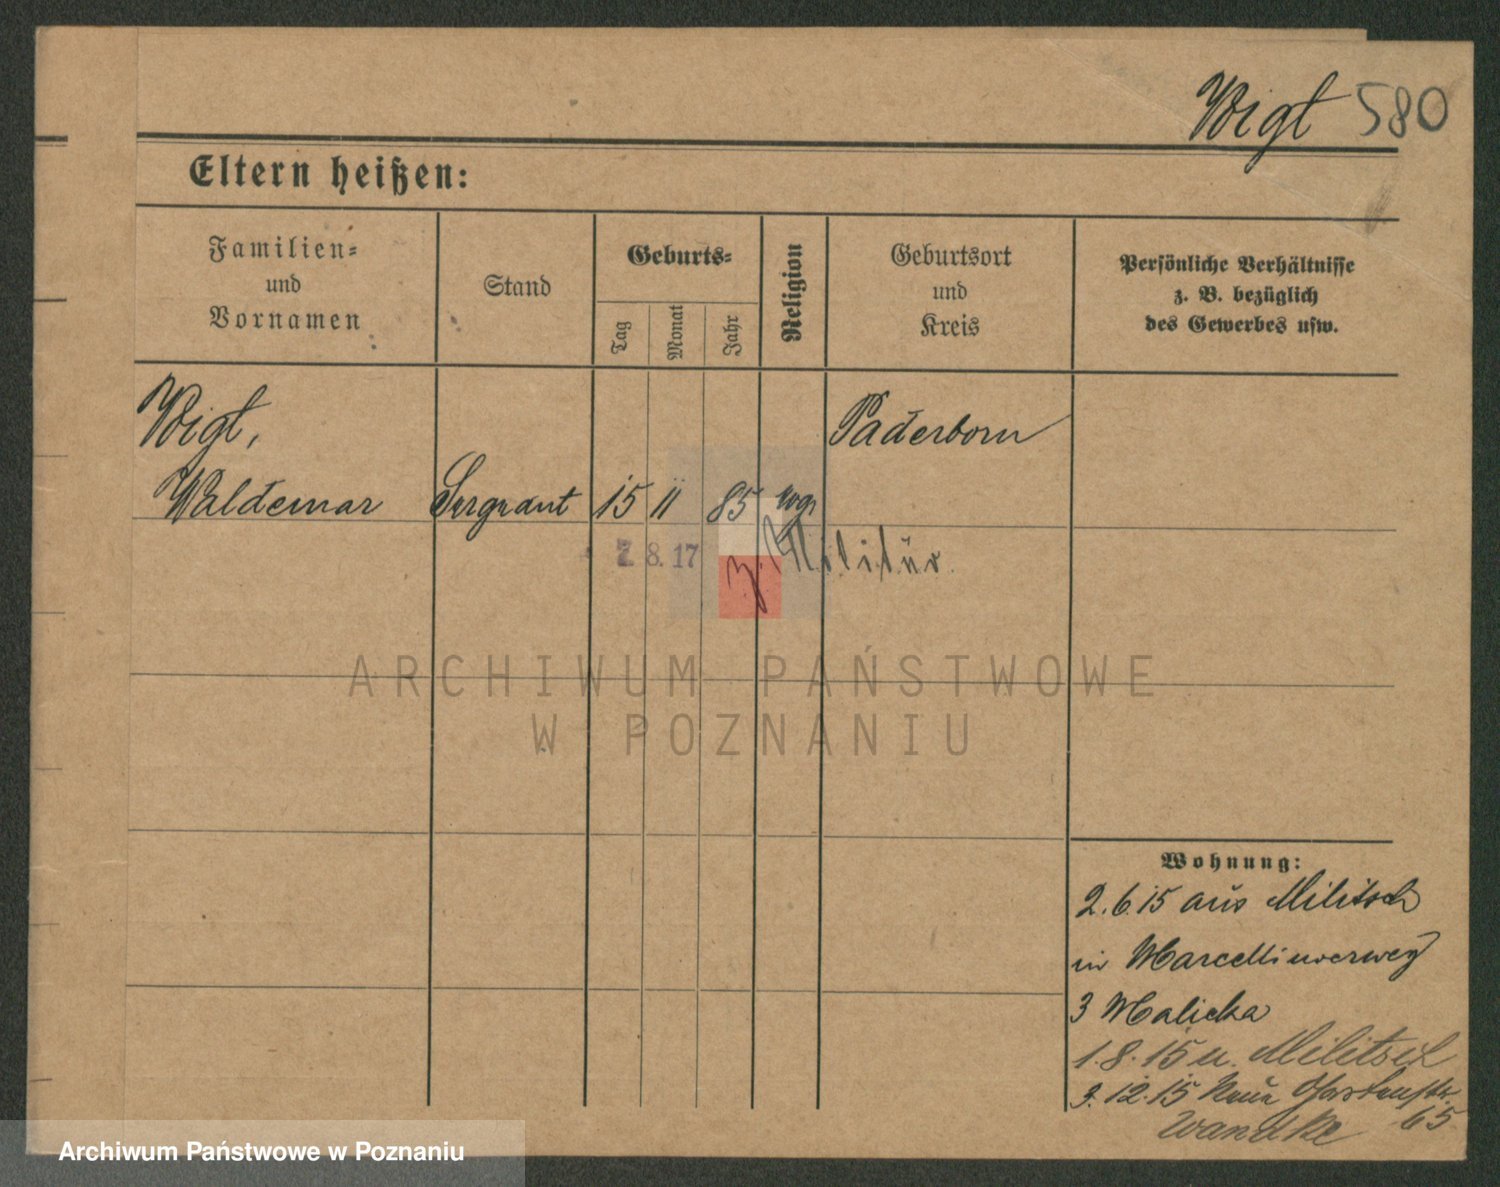 Voigt 580
Eltern heißen:
Familien=
und
Vornamen
Stand
Geburts=
Tag
Monat
Jahr
Religion
Geburtsort
und
Kreis
Persönliche Verhältnisse
z. B. bezüglich
des Gewerbes usw.
Voigt,
Paderborn
Waldemar Sergeant 15 11 85
7. 8. 17 z. Militär.
ARCHIWUM PAŃSTWOWE
W POZNANIU
Wohnung:
2.6.15 aus Militsch
in Marcellinerweg
3 Malicka
1.8.15 n. Militsch
3.12.15 Neue Gartenstr.
65
Wandke
Archiwum Państwowe w Poznaniu